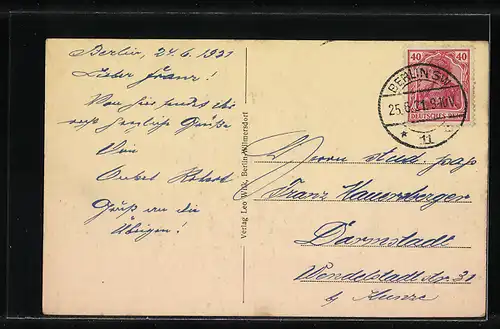 Berlin, 24.6.1921
Lieber Franz!
Von hier sendet dir
recht herzliche Grüße
Dein
Onkel Robert
Gruß an die
Übrigen!
Verlag Leo Wolff, Berlin-Wilmersdorf
40 40
DEUTSCHES REICH
BERLIN SW
25.6.21. 9-10 V.
* 11
Herrn stud.
Franz
Darmstadt
Wendelstadtstr. 31
b/ Kunze